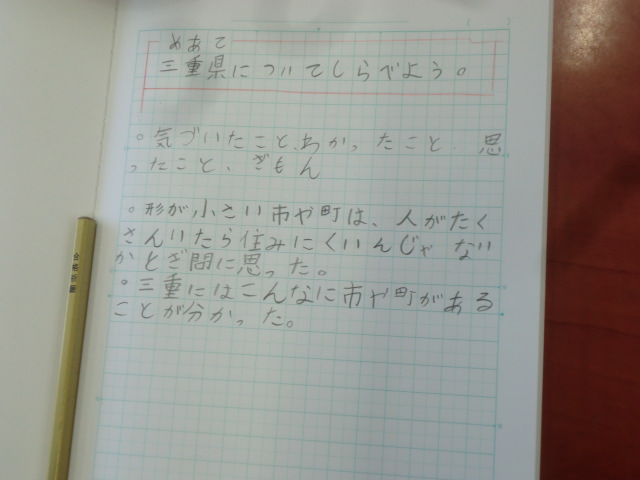 めあて
三重県についてしらべよう。
。気づいたこと、わかったこと、思
ったこと、ぎもん
。形が小さい市や町は、人がたく
さんいたら住みにくいんじゃない
かとぎ問に思った。
。三重にはこんなに市や町がある
ことが分かった。
合格祈願